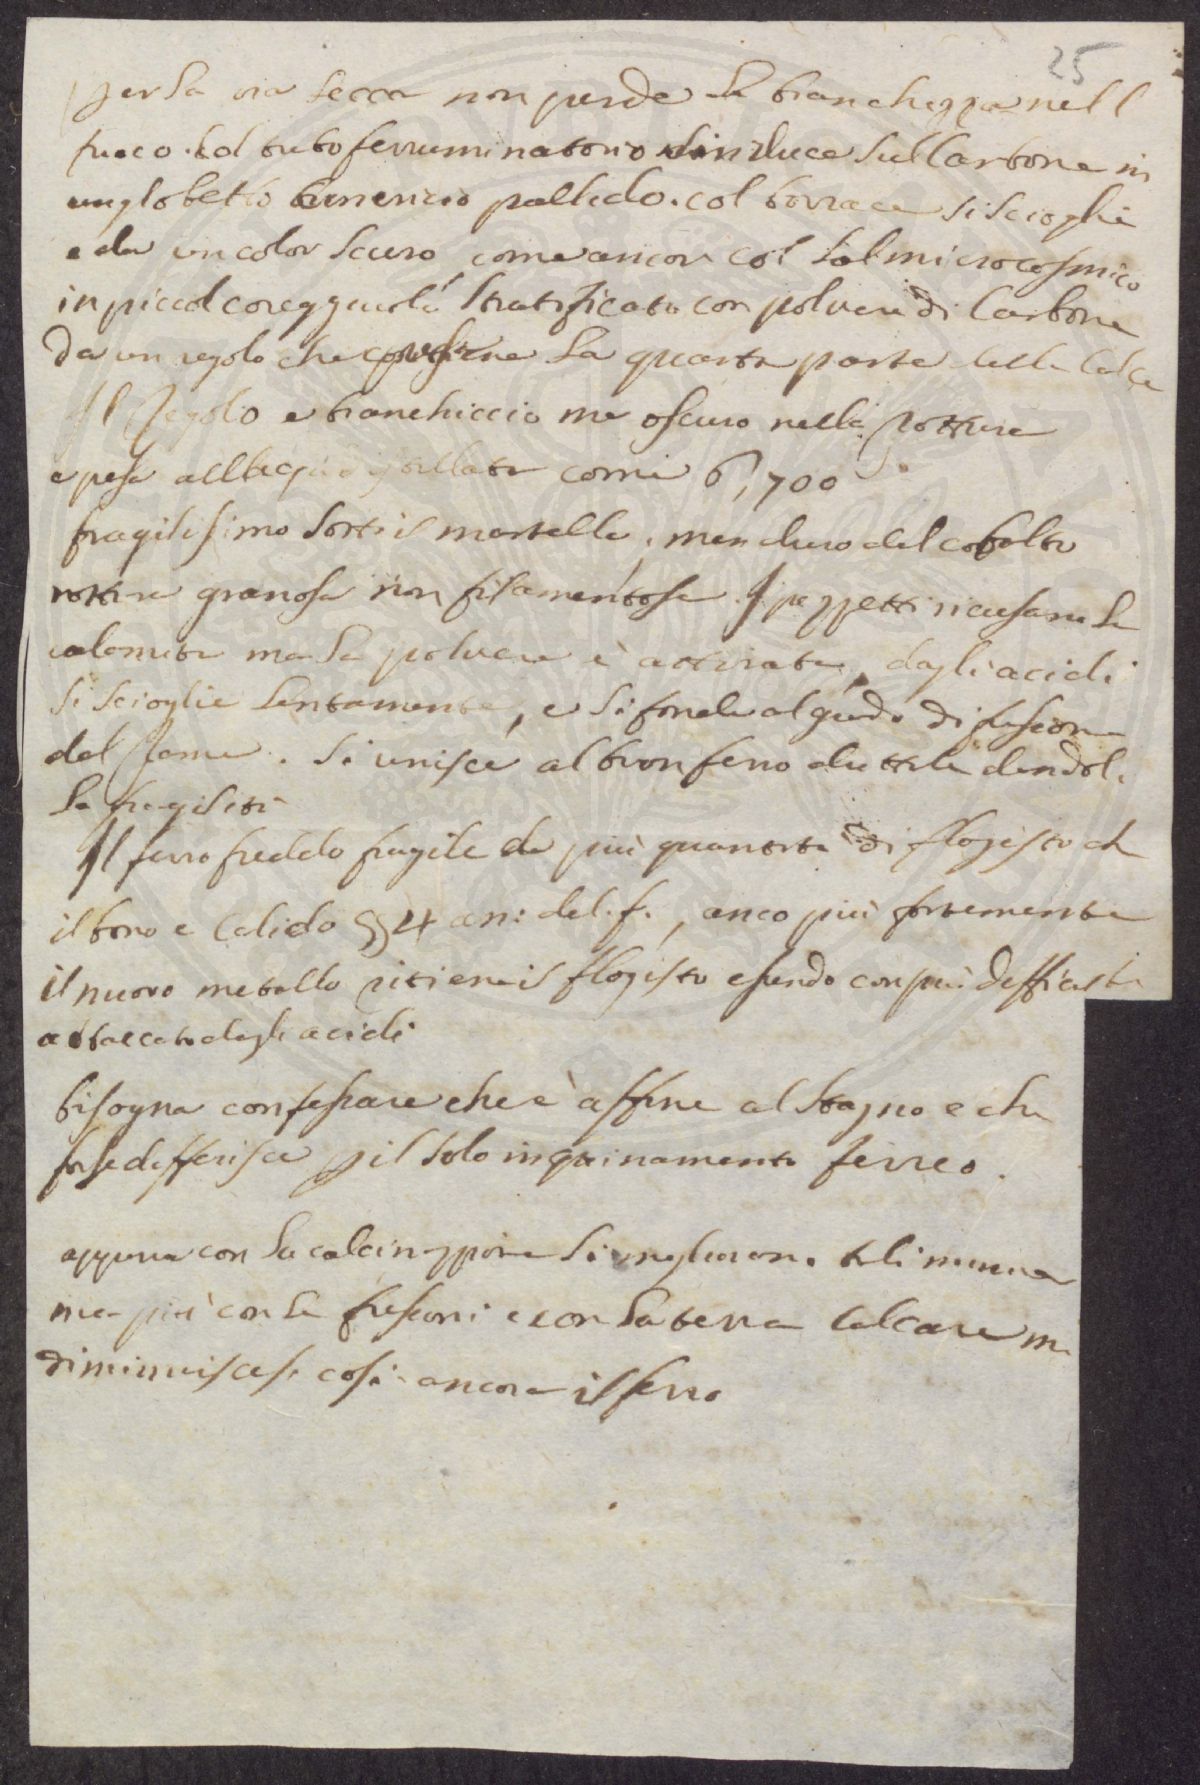 25
per la via secca non perde la bianchezza nell
fuoco. col tubo ferruminatorio si riduce sul Carbone in
un globetto pallido. col borrace si scioglie
e da un color scuro come ancor col Sal microcosmico
in piccol coreggiuolo stratificato con polvere di Carbone
da un regolo che contiene la quarta parte della Calce
Il Regolo e bianchiccio ma oscuro nella rottura
e pesa all'acqua distillata come 6,700
fragilissimo sotto il martello, men duro del cobalto
rottura granosa non filamentosa. I pezzetti ricusano la
calamita ma la polvere è attirata, dagli acidi
si scioglie lentamente, e si fonde al grado di fusione
del Rame. Si unisce al buon ferro duttile dandoli
la fragilità
Il ferro freddo fragile da più quantità di flogisto che
il bono e Calido § 4 an: del. f., anco più fortemente
il nuovo metallo ritiene il flogisto essendo con più difficoltà
attaccato dagli acidi
bisogna confessare che è affine al Stagno e che
forse differisce p il solo inquinamento ferreo.
appena con la calcinazione si migliorano tali miniere
ma più con la fusioni e con la terra Calcare ma
diminuiscesi così ancora il ferro